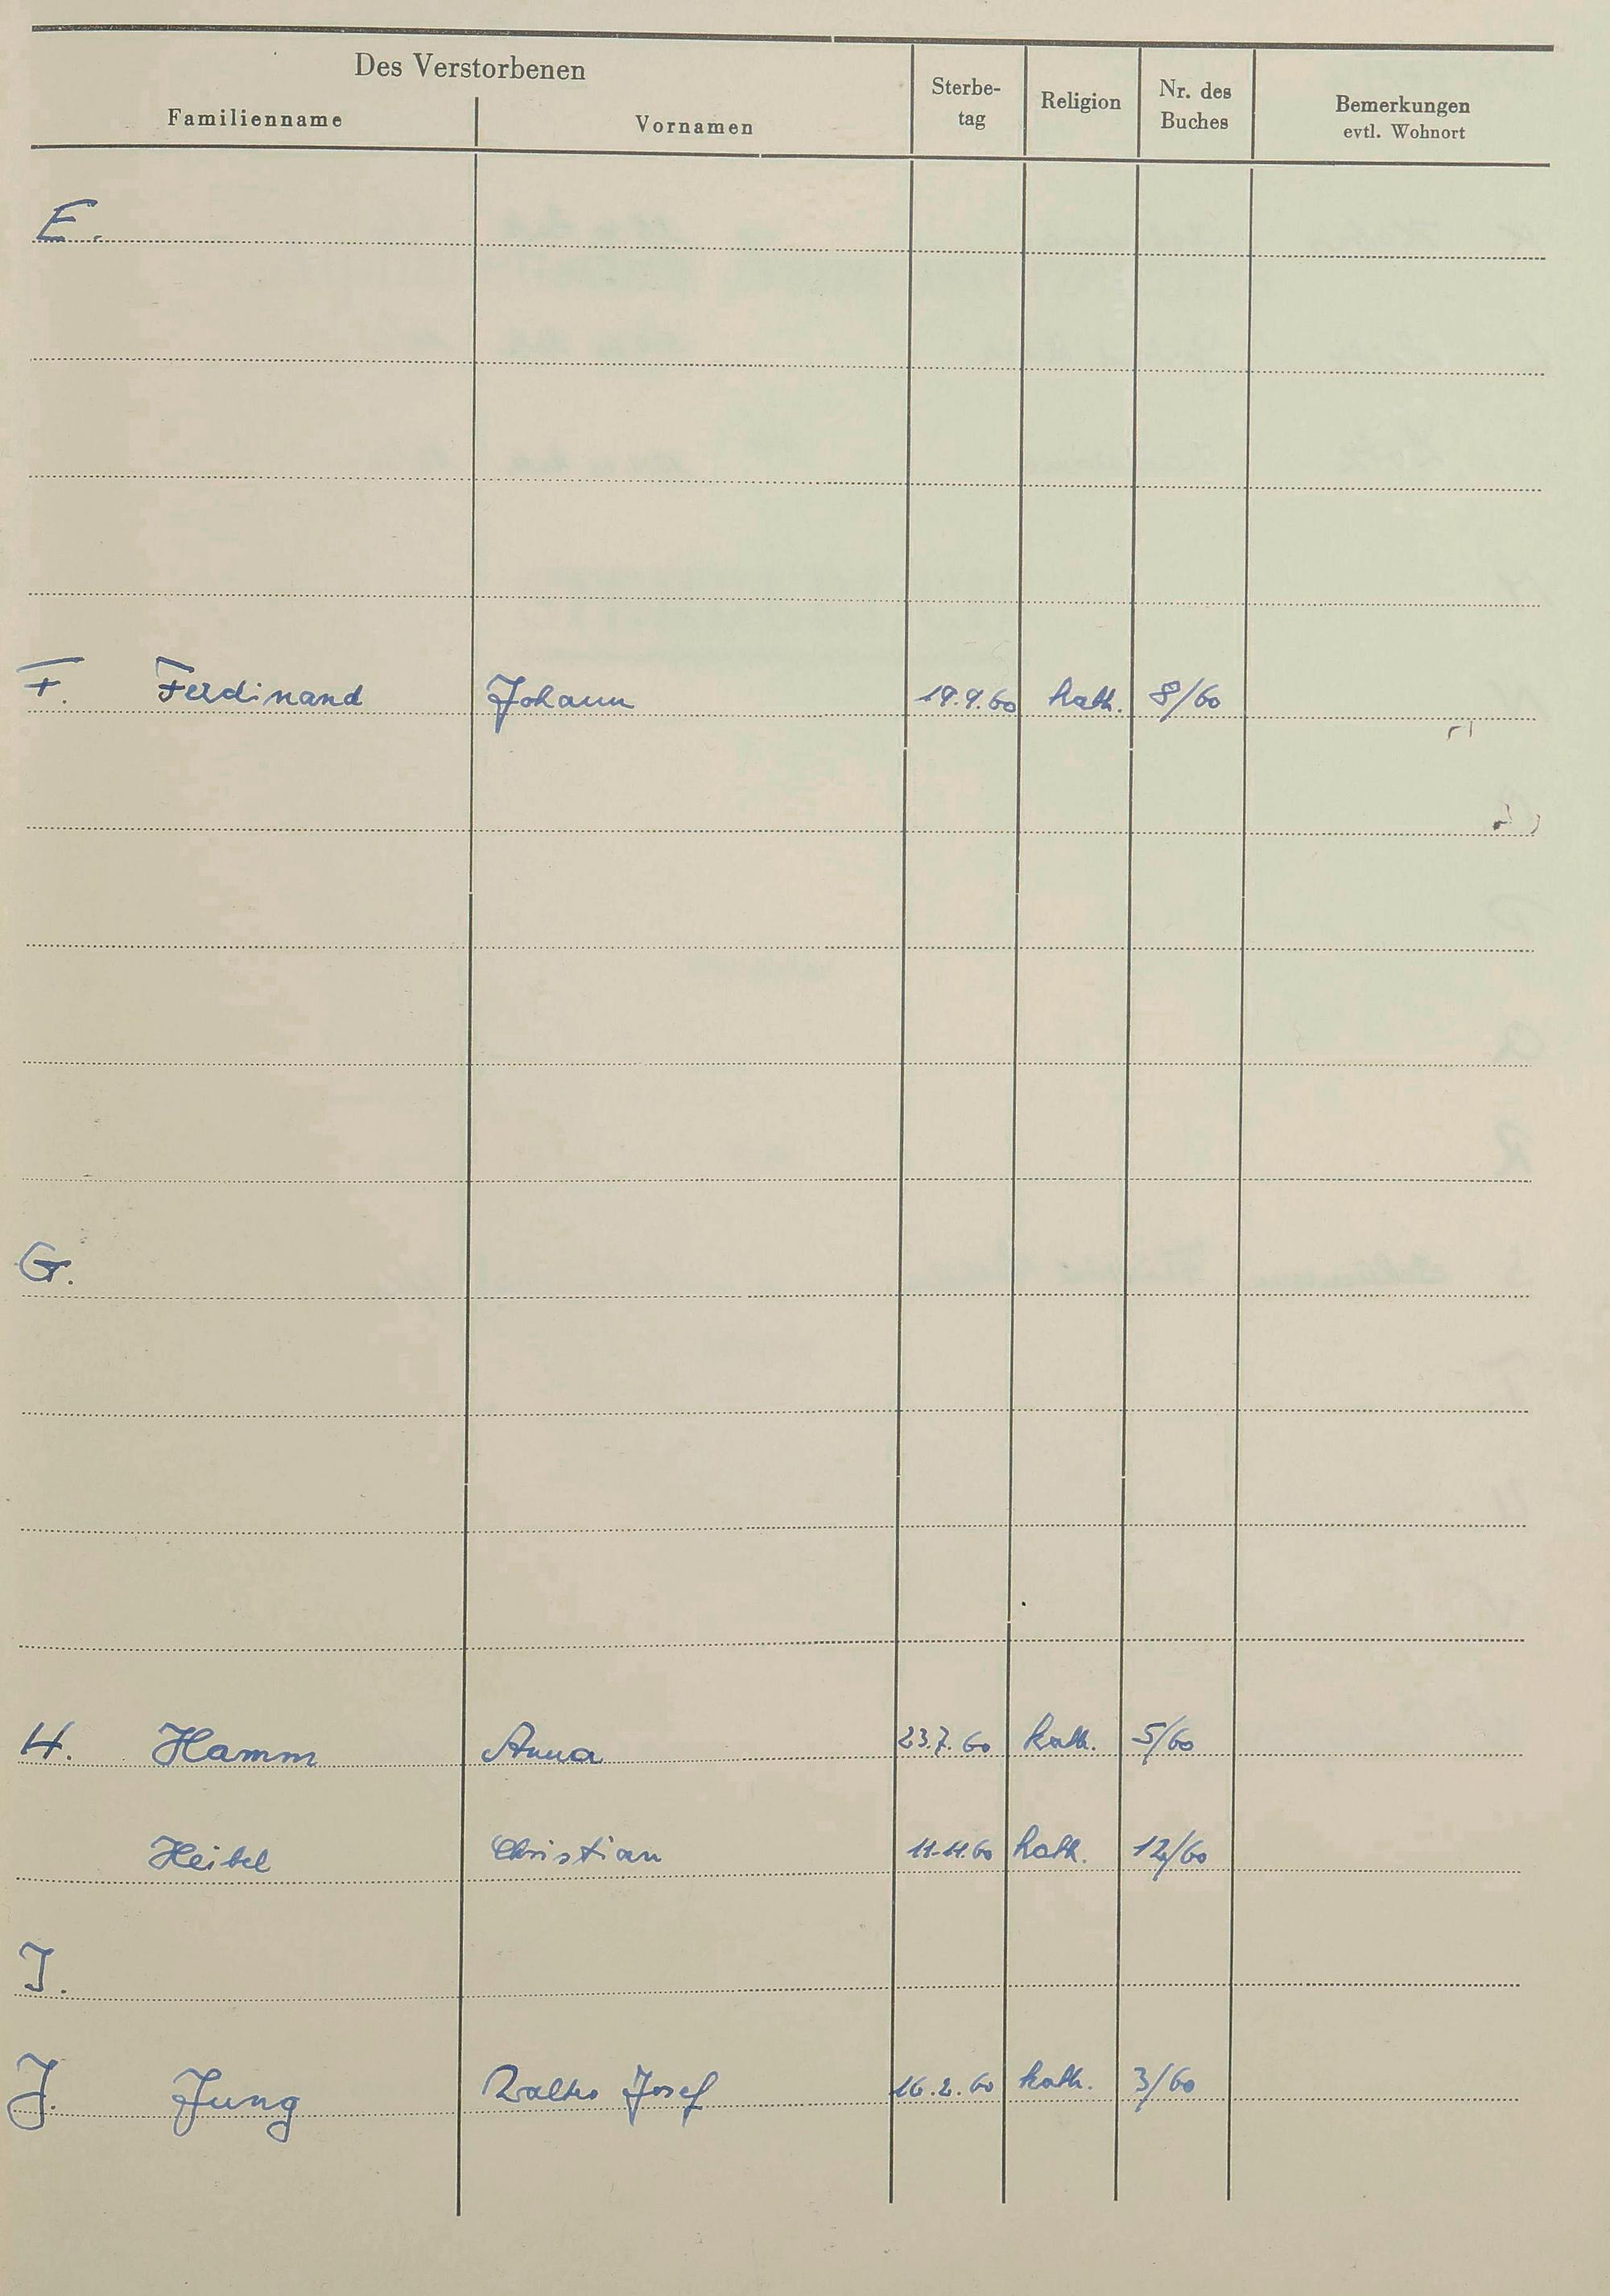 Des Verstorbenen
Familienname Vornamen Sterbe-tag Religion Nr. des Buches Bemerkungen evtl. Wohnort
E.
F. Ferdinand Johann 19.9.60 kath. 8/60
G.
H. Hamm Anna 23.7.60 kath. 5/60
Heibel Christian 11.11.60 kath. 12/60
I.
J. Jung Josef 16.2.60 kath. 3/60